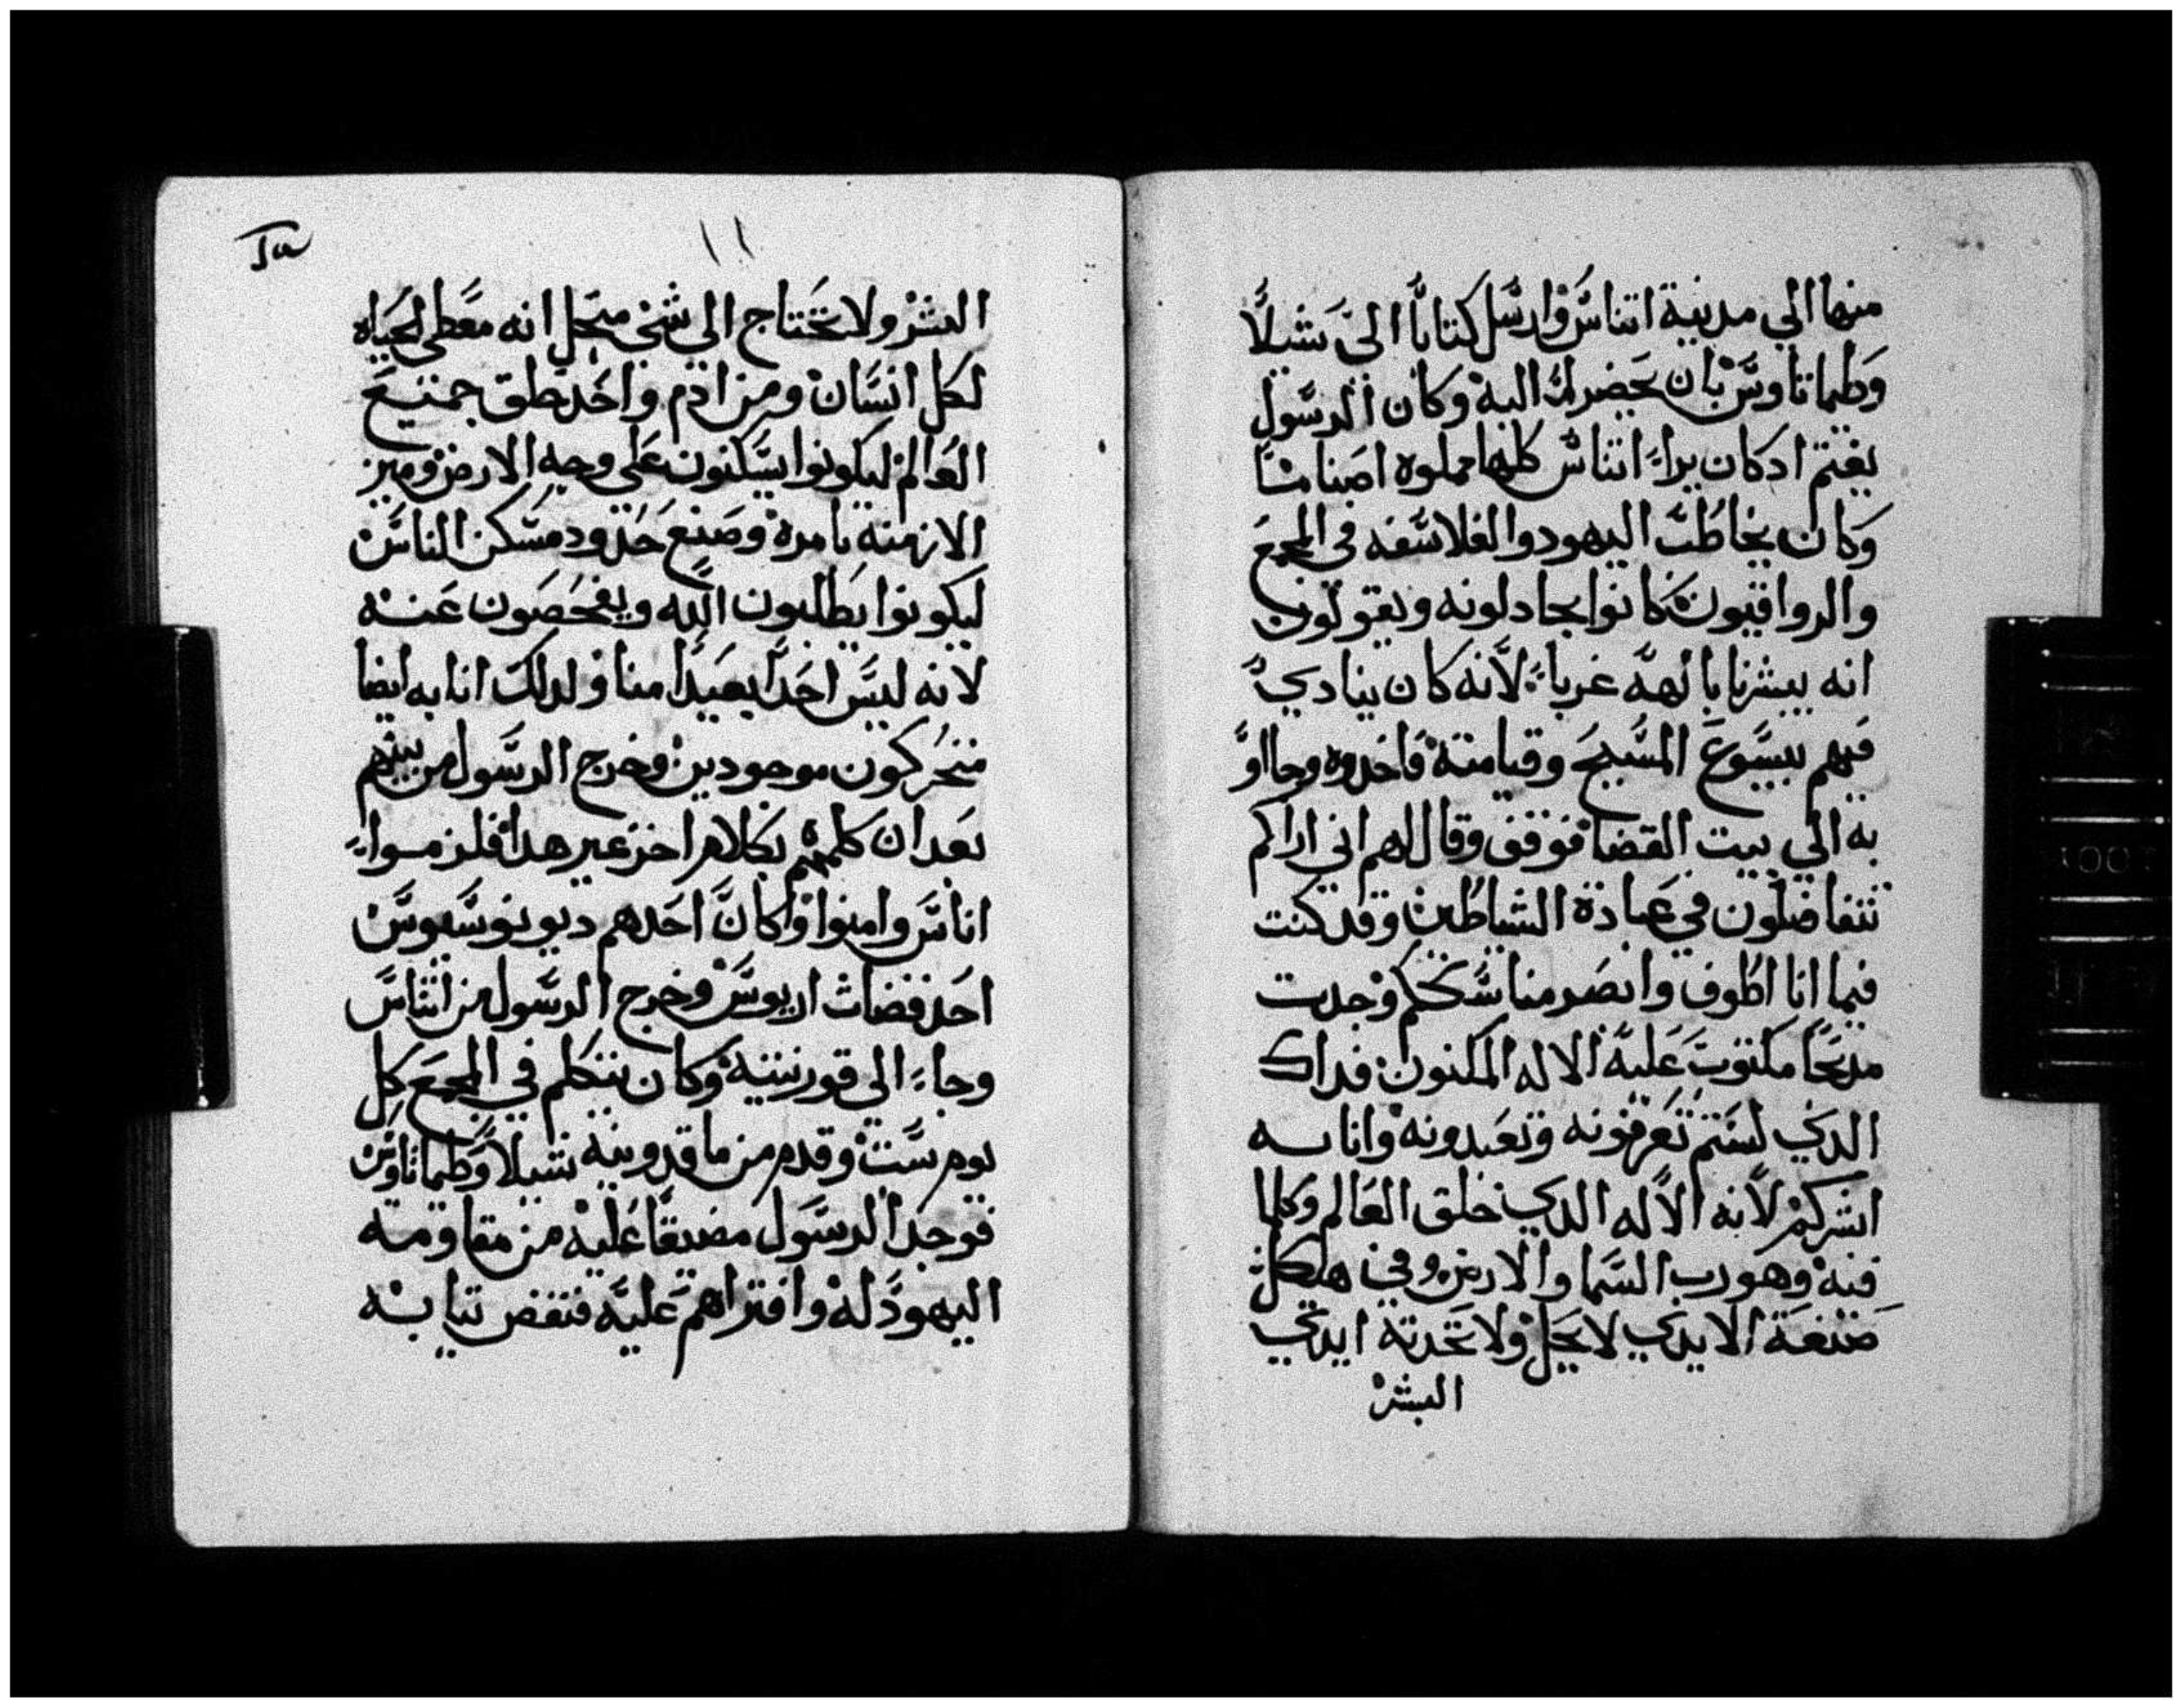 منها الي مدينة اتناس وارسل كتابا الي شيلا
وطيماتاوس بان يحضرا اليه وكان الرسول
يغتم ادكان يراء اتناس كلها مملوه اصناما
وكان يخاطب اليهود والفلاسفه في المجمع
والرواقيون كانوا يجادلونه ويقولون
انه يبشرنا بالهه غربا لانه كان ينادي
فيهم بيسوع المسيح وقيامته فاخدوه وجااو
به الي بيت القضا فوقف وقال لهم اني اراكم
تتفاضلون في عبادة الشياطين وقد كنت
فيما انا اطوف وابصر مناسككم وجدت
مدبحا مكتوب عليه الاله المكنون فداك
الدي لستم تعرفونه وتعبدونه وانا به
ابشركم لانه الاله الدي خلق العالم وكلما
فيه وهو رب السما والارض وفي هياكل
صنعة الايدي لا يحل ولا تخدمه ايدي
البشر
١١
البشر ولا تحتاج الي شي منجل انه معطي الحياه
لكل انسان ومن ادم واحد خلق جميع
العالم ليكونوا يسكنون علي وجه الارض وميز
الازمنه بامره وصنع حدود مسكن الناس
ليكونوا يطلبون الله ويفحصون عنه
لانه ليس احدا بعيدا منا ولدلك انا به ايضا
متحركون موجودين وخرج الرسول من بينهم
بعد ان كلمهم بكلام اخر غير هدا فلزموا
اناس وامنوا وكان احدهم ديونوسيوس
احد قضات اريوس وخرج الرسول من اتناس
وجاء الي قورنتيه وكان يتكلم في المجمع كل
يوم سبت وقدم من ماقدونيه شيلا وطيماتاوس
فوجدا الرسول مضيقا عليه من مقاومه
اليهود له وافتراهم عليه فنفض تيابه